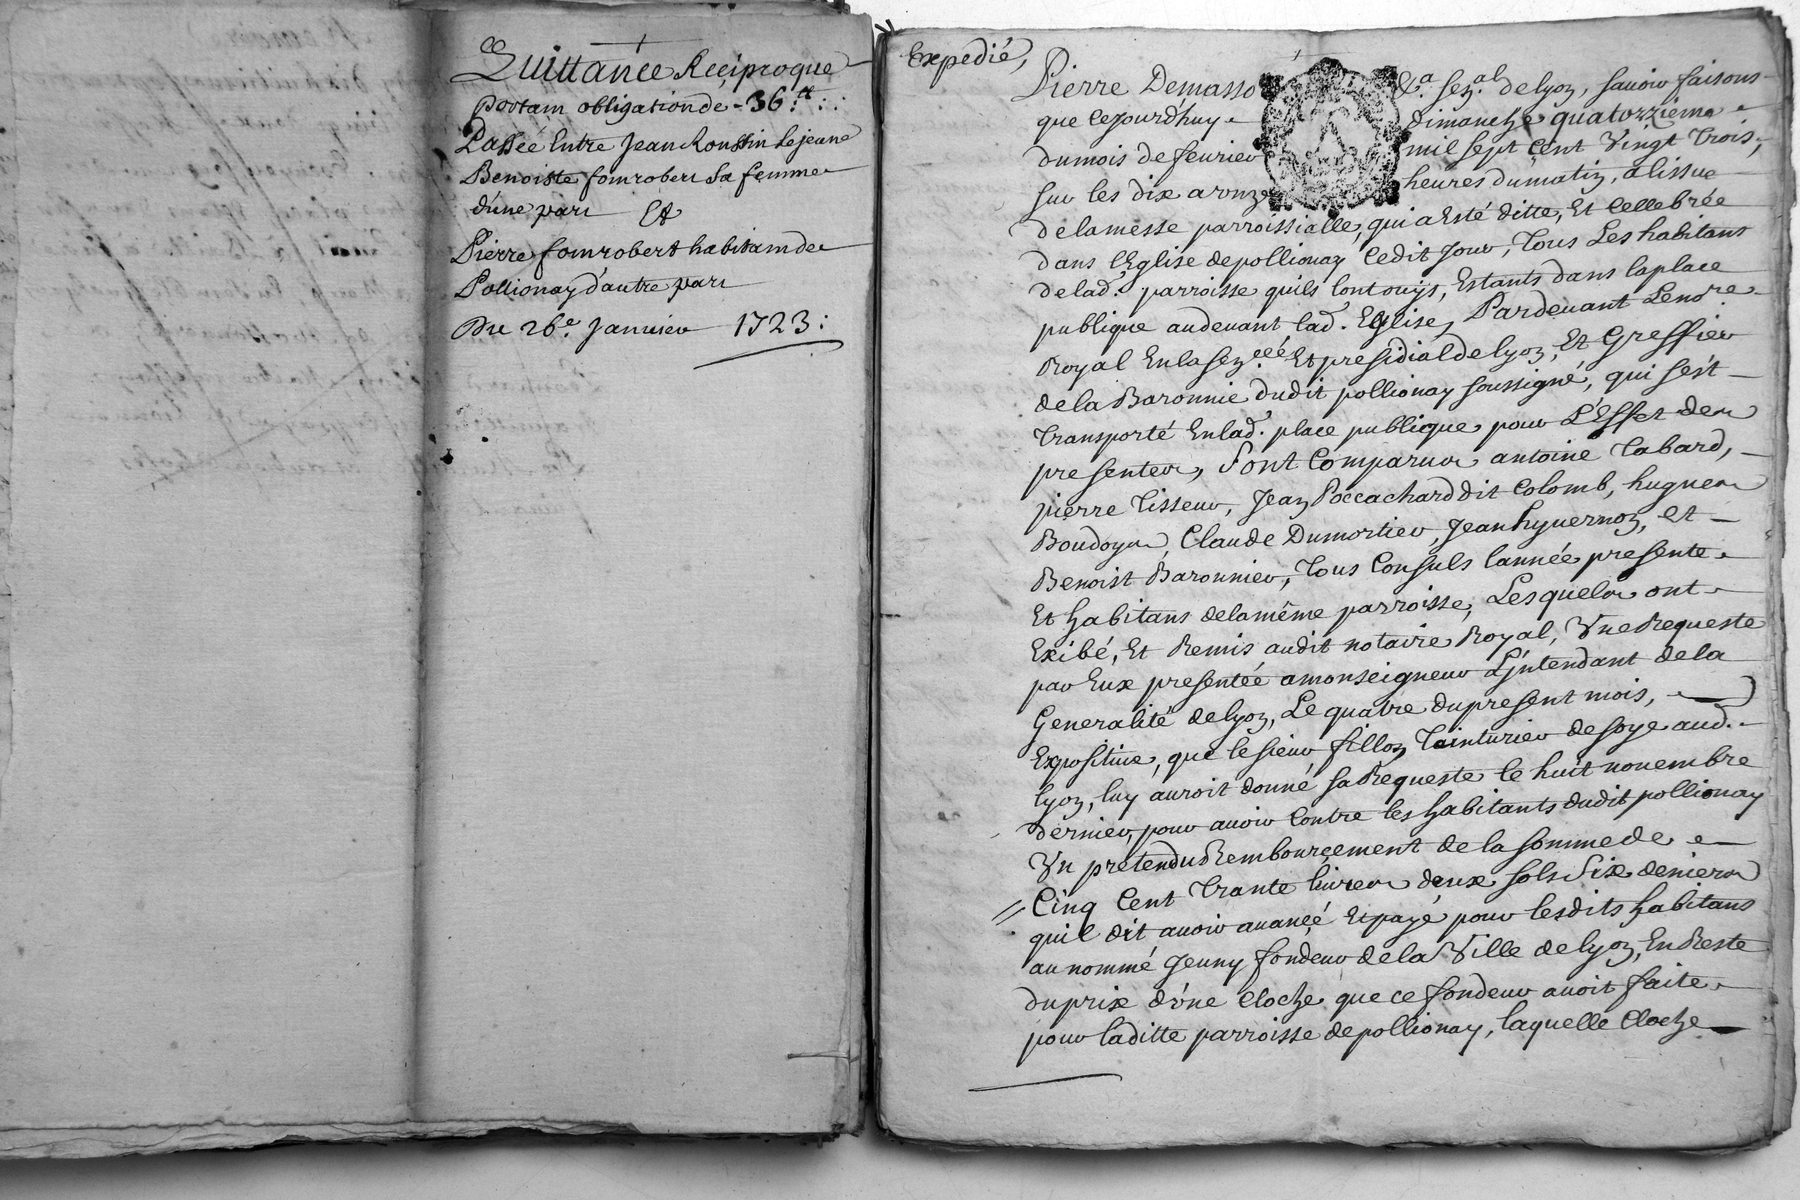 Quittance Reciproque
portam obligation de 36 ₶ :
Passée Entre Jean Roussin Lejeune
Benoiste fomrobert Sa femme
d'une part Et
Pierre fomrobert habitam de
Pollionay d'autre part
Du 26e Januier 1723 :
Expedié,
Pierre Demasso &a. sen.al de lyon, sauoir faisons
que Cejourd'huy dimanche quatorzieme
du mois de feurier mil sept Cent Vingt Trois,
sur les dix a onze heures du matin, a lissue
de la messe parroissialle, qui a Esté ditte, Et Cellebrée
dans l'Eglise de pollionay Cedit Jour, Tous Les habitans
de lad. parroisse quils lont ouys, Estants dans la place
publique au deuant lad. Eglise, Pardeuant Le nore
Royal En la sen.ceé Et presidial de lyon, Et Greffier
de la Baronnie dudit pollionay soussigné, qui s'est
Transporté En lad. place publique pour L'Effet des
presentes, Sont Comparus antoine Tabard,
pierre Tisseur, Jean Poccachard dit Colomb, hugues
Boudoyn, Claude Dumortier, Jean huuernon, et
Benoist Baronnier, Tous Consuls lannée presente
Et habitans de la même parroisse, Lesquels ont
Exibé, Et Remis audit notaire Royal, Vne Requeste
par Eux presentéé a monseigneur L'jntendant de la
Generalité de lyon, Le quatre du present mois,
Expositiue, que le sieur fillon Tainturier de soye aud.
lyon, luy auroit donné sa Requeste le huit nouembre
dernier, pour auoir Contre les habitants dudit pollionay
Vn pretendu Rembourçement de la somme de
Cinq Cent Trante liures deux sols Six deniers
quil dit auoir auançé Et payé pour lesdits habitans
au nommé Jeuny fondeur de la Ville de lyon, En Reste
du prix d'une Cloche que ce fondeur auoit faite
pour laditte parroisse de pollionay, laquelle Cloche